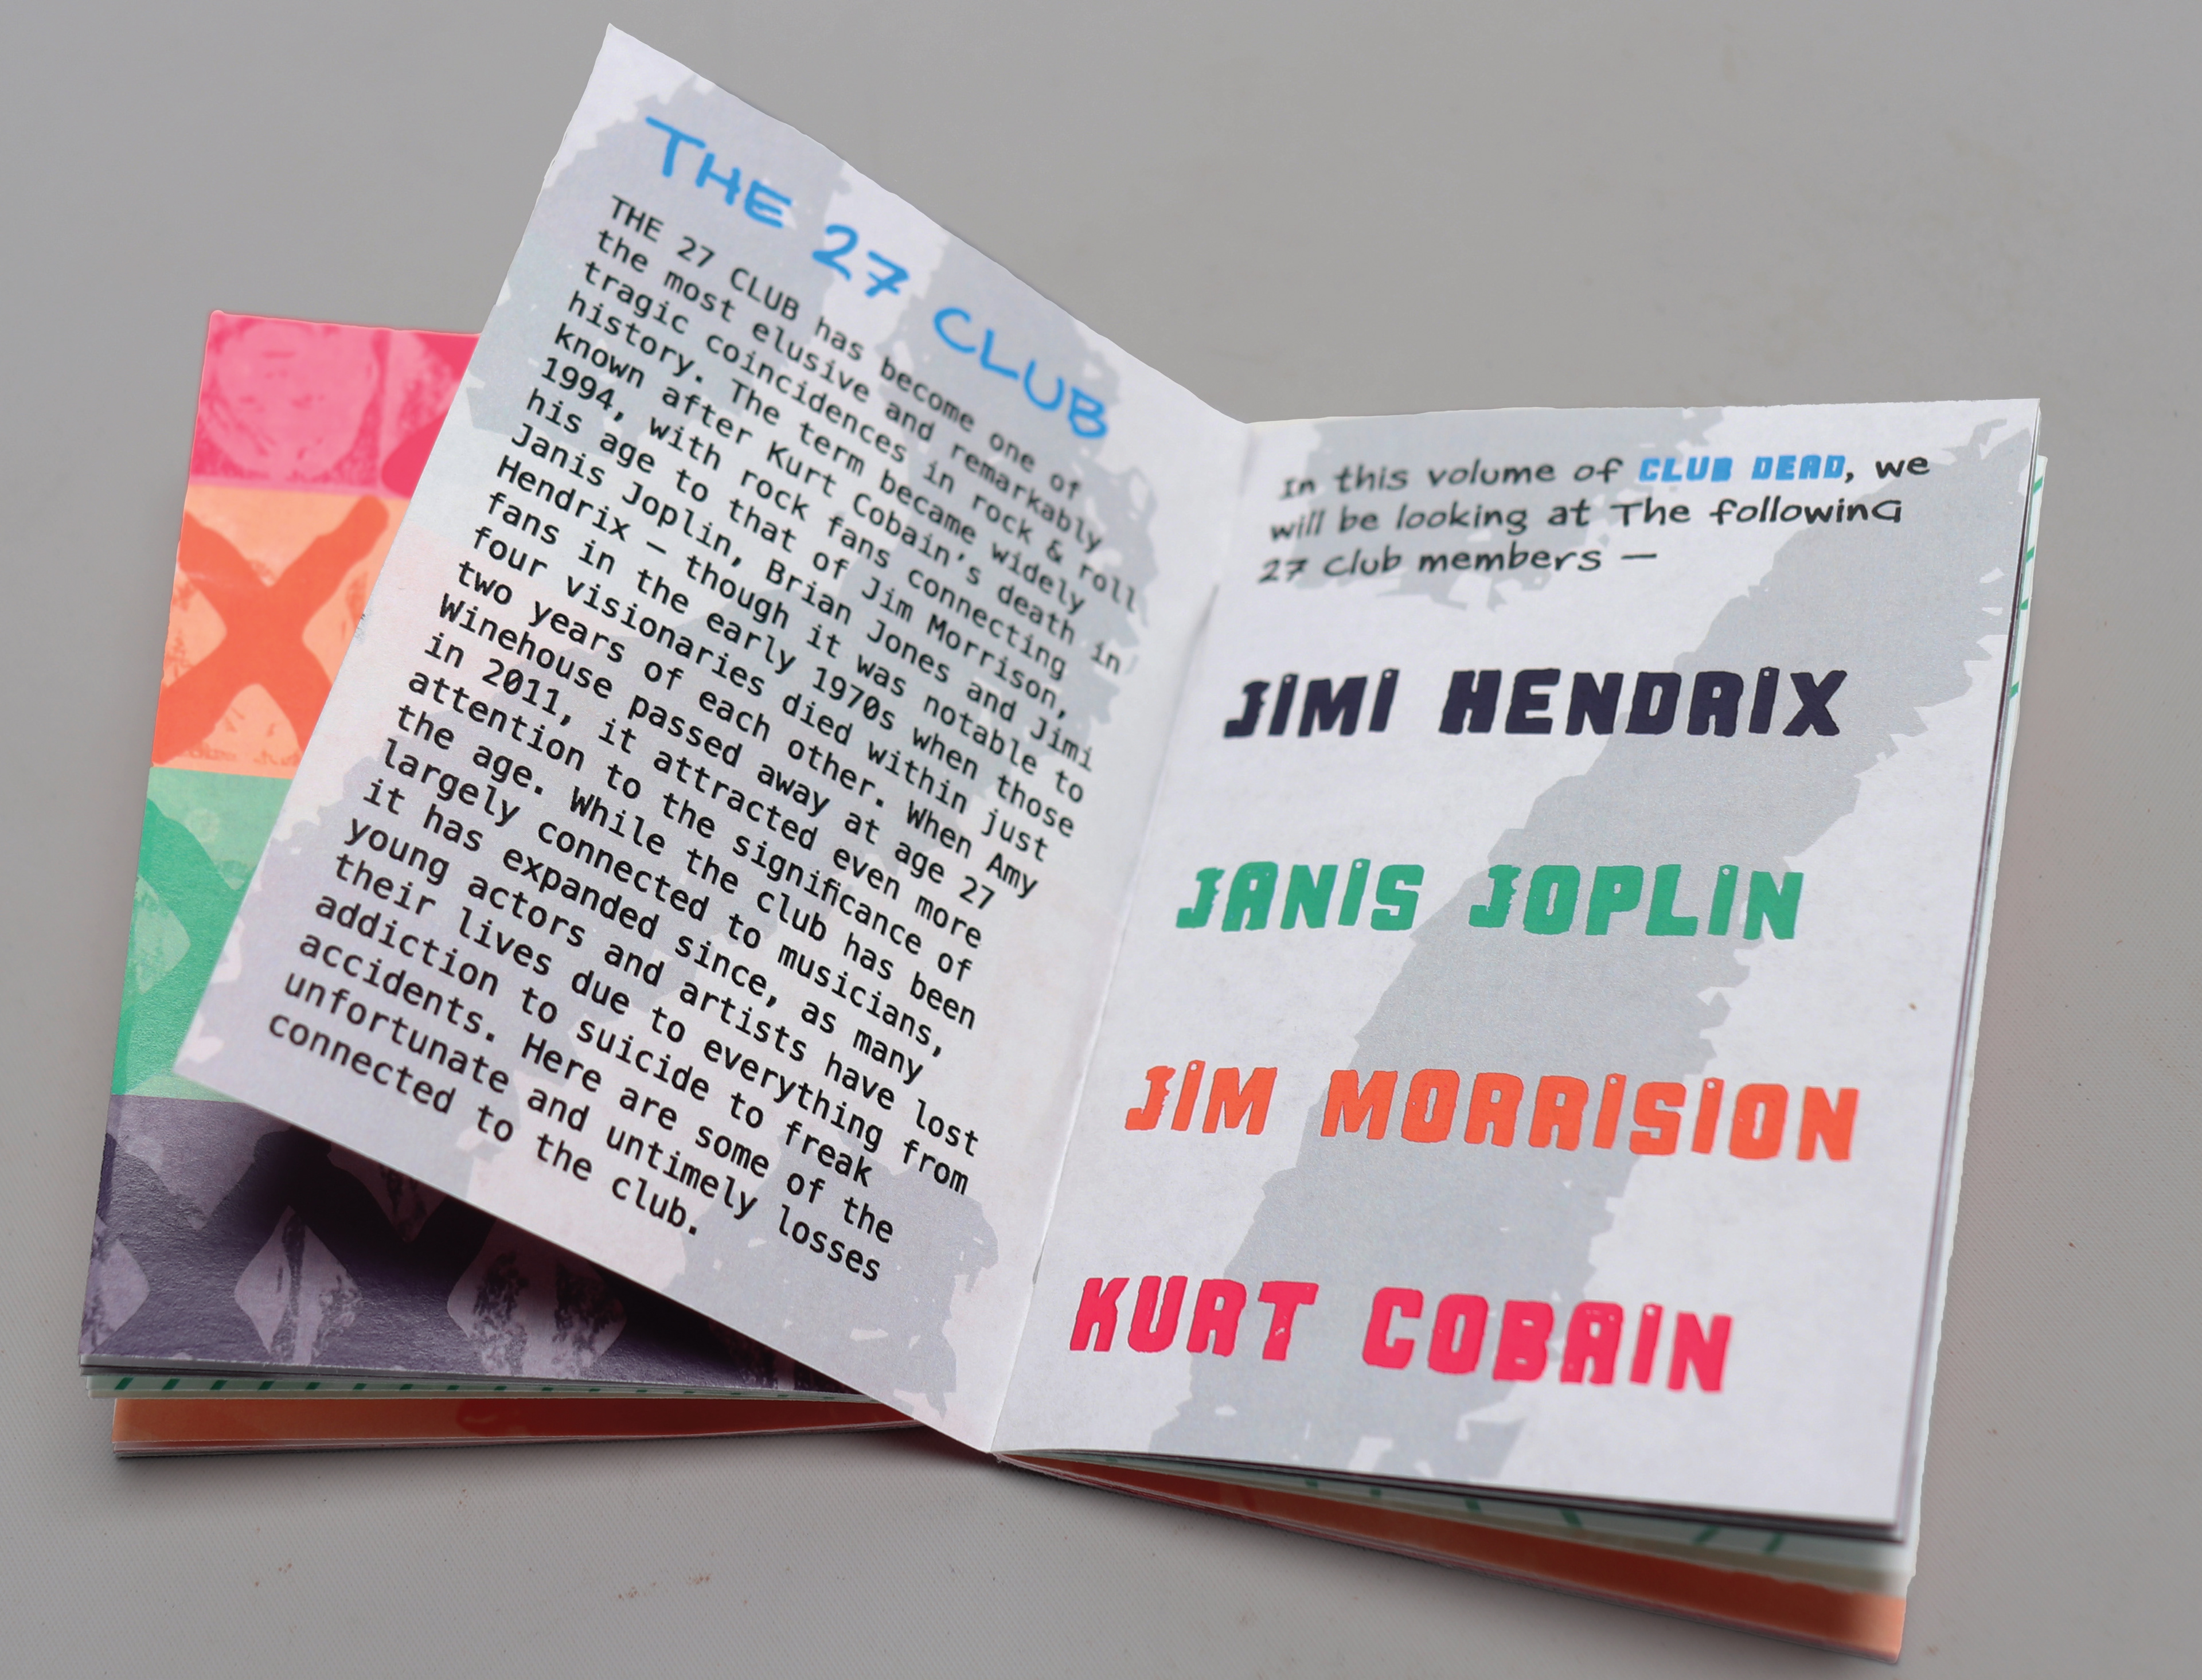 THE 27 CLUB
THE 27 CLUB has become one of
the most elusive and remarkably
tragic coincidences in rock & roll
history. The term became widely
known after Kurt Cobain's death in
1994, with rock fans connecting
his age to that of Jim Morrison,
Janis Joplin, Brian Jones and Jimi
Hendrix – though it was notable to
fans in the early 1970s when those
four visionaries died within just
two years of each other. When Amy
Winehouse passed away at age 27
in 2011, it attracted even more
attention to the significance of
the age. While the club has been
largely connected to musicians,
it has expanded since, as many
young actors and artists have lost
their lives due to everything from
addiction to suicide to freak
accidents. Here are some of the
unfortunate and untimely losses
connected to the club.
In this volume of CLUB DEAD, we
will be looking at The following
27 Club members —
JIMI HENDRIX
JANIS JOPLIN
JIM MORRISION
KURT COBAIN